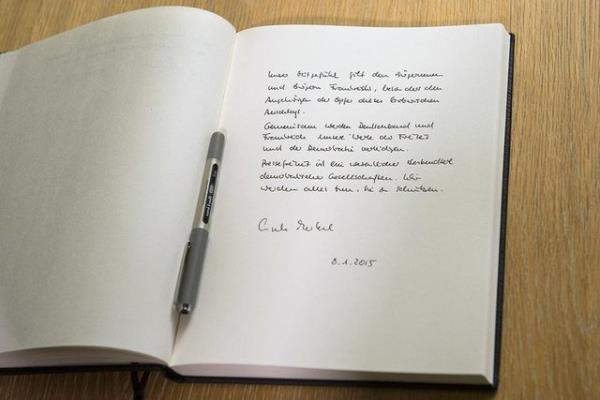 Unser Mitgefühl gilt den Bürgerinnen
und Bürgern Frankreichs, besonders den
Angehörigen der Opfer dieses barbarischen
Anschlags.
Gemeinsam werden Deutschland und
Frankreich unsere Werte der Freiheit
und der Demokratie verteidigen.
Pressefreiheit ist ein wesentlicher Bestandteil
demokratischer Gesellschaften. Wir
werden alles tun, sie zu schützen.
8.1.2015